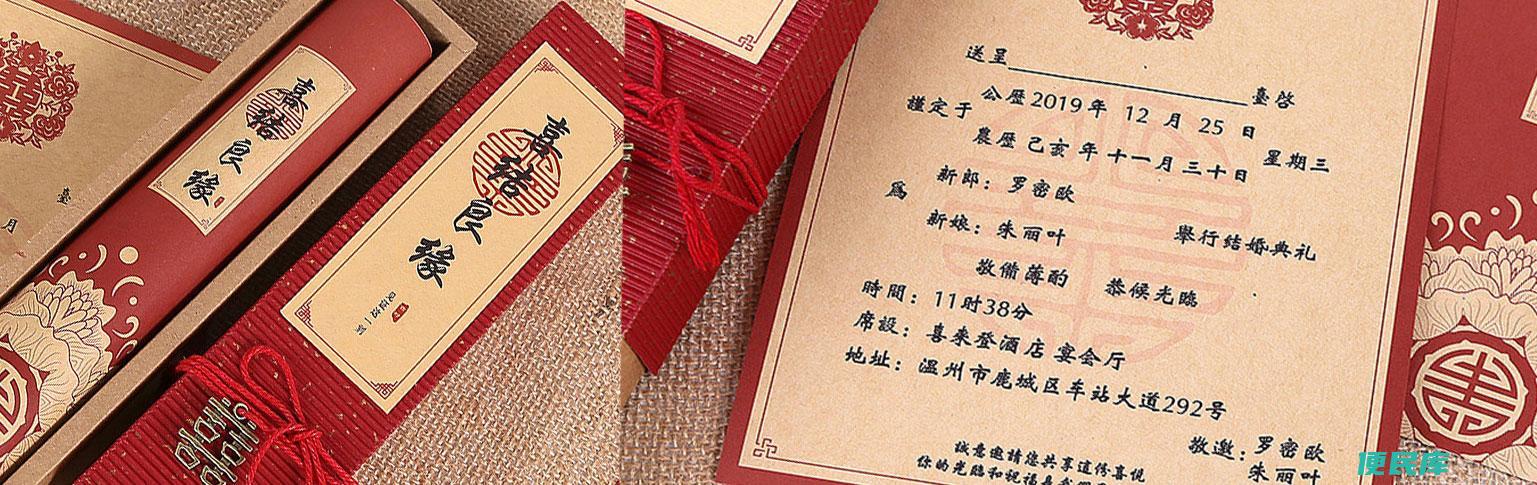 喜结良缘
臺
月
喜结良缘
送呈 臺啓
公歷2019年 12 月 25 日
謹定于 星期三
農歷己亥年十一月三十日
新郎：罗密欧
爲
新娘：朱丽叶 舉行结婚典礼
敬備薄酌 恭候光臨
時間：11时38分
席設：喜来登酒店宴会厅
地址：温州市鹿城区车站大道292号
敬邀：罗密欧
朱丽叶
誠意邀請您共享這份喜悦
你的光臨和祝福是
便民库